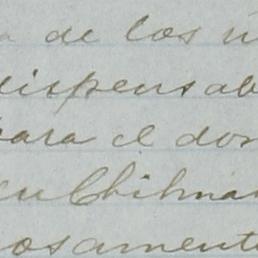 a de los n
dispensab
para el don
en Chihua
osamente